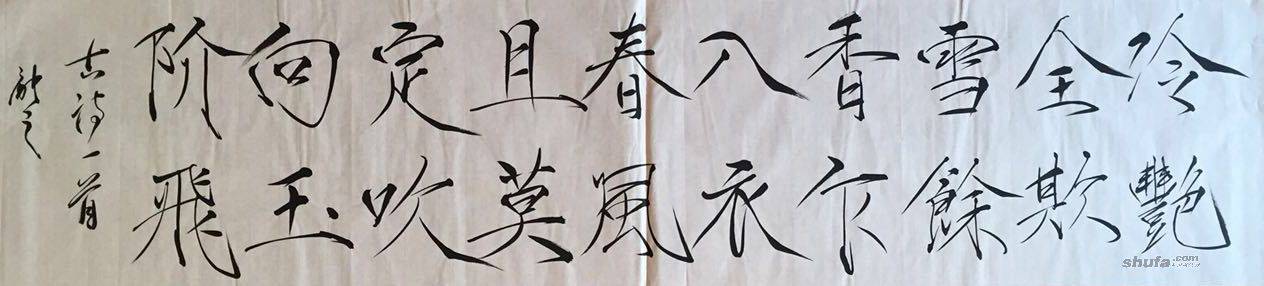 冷艷
全欺
雪餘
香乍
入衣
春風
且莫
定吹
向玉
阶飛
古诗一首
之
shufa.com